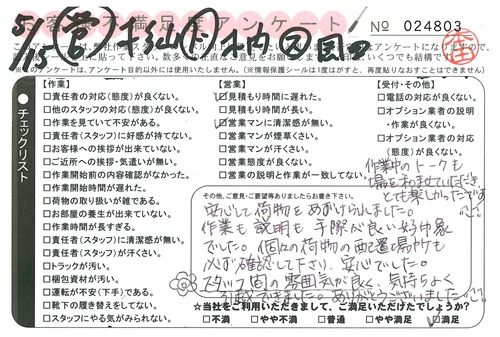 お客様不満足度アンケート
№ 024803
5/15
※このアンケートは、アンケート目的以外には使用いたしません。(※情報保護シールは1度はがすと、再度貼りなおすことはできません)
チェックリスト
【作業】
□責任者の対応(態度)が良くない。
□他のスタッフの対応(態度)が良くない。
□作業を見ていて不安がある。
□責任者(スタッフ)に好感が持てない。
□お客様への挨拶が出来ていない。
□ご近所への挨拶・気遣いが無い。
□作業開始前の内容確認がなかった。
□作業開始時間が遅れた。
□荷物の取り扱いが雑である。
□お部屋の養生が出来ていない。
□作業時間が長すぎる。
□責任者(スタッフ)に清潔感が無い。
□責任者(スタッフ)が汗くさい。
□トラックが汚い。
□梱包資材が汚い。
□運転が不安(下手)である。
□靴下の履き替えをしてない。
□スタッフにやる気がみられない。
【営業】
□見積もり時間に遅れた。
□見積もり時間が長い。
□営業マンに清潔感が無い。
□営業マンが煙草くさい。
□営業マンが汗くさい。
□営業態度が良くない。
□営業の説明と作業が一致してない。
【受付・その他】
□電話の対応が良くない。
□オプション業者の説明
・作業が良くない。
□オプション業者の対応
(態度)が良くない。
作業中のトークも
場を和ませていただき
とても楽しかったです
その他、ご意見・ご要望等ありましたらお書き下さい。
安心して荷物をあずけられました。
作業も説明も手際が良い好印象
でした。個々の荷物の配置場所も
必ず確認して下さり、安心でした。
スタッフ間の雰囲気が良く、気持ちよく
お任せできました。ありがとうございました
☆当社をご利用いただきまして、ご満足いただけたでしょうか?
□不満 □やや不満 □普通 □やや満足 ☑満足